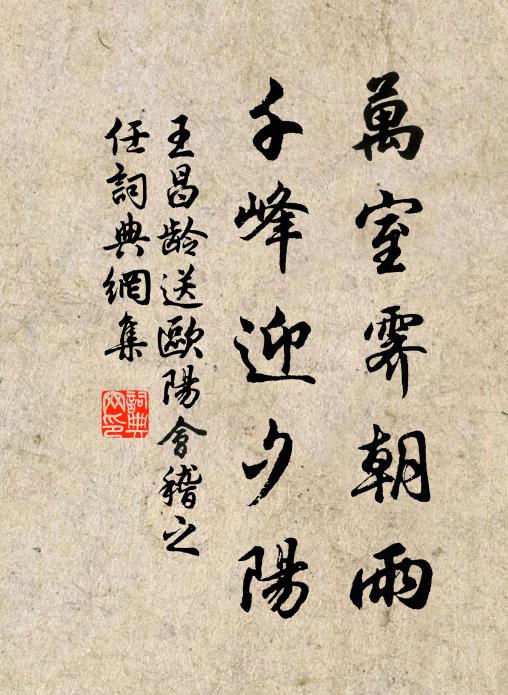 萬室霽朝雨
千峰迎夕陽
王昌齡送歐陽會稽之
任詞典網集
詞典
网印